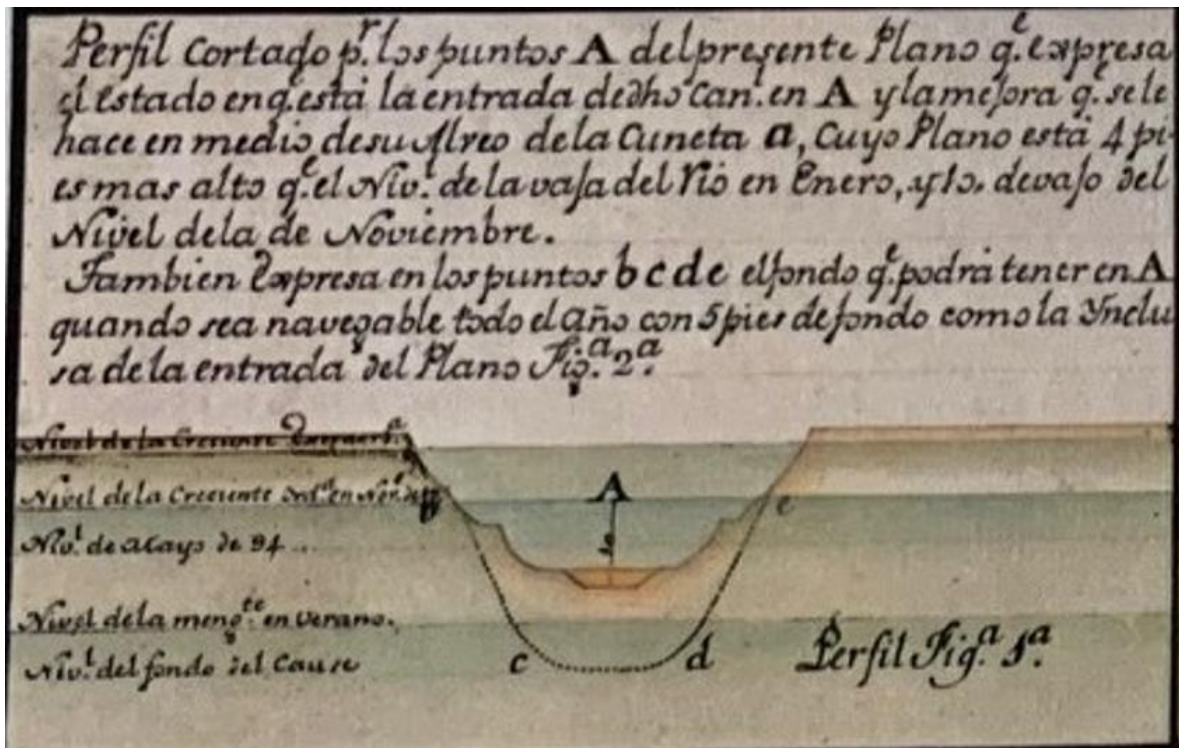 Perfil Cortado p.r los puntos A del presente Plano q.e expresa
el Estado en q.e está la entrada de dho Can.l en A y la mejora q.e se le
hace en medio de su Alreo de la Cuneta a, Cuyo Plano está 4 pi-
es mas alto q.e el Niv.l de la vaja del Rio en Enero, y 10. devajo del
Nivel de la de Noviembre.
Tambien Expresa en los puntos b c d e el fondo q.e podrá tener en A
quando sea navegable todo el año con 5 pies de fondo como la Ynclu
sa de la entrada del Plano Fig.a 2.a
Nivel de la Creciente
Nivel de la Creciente Ord.a en Nov.e
A
e
Niv.l de Mayo de 94..
Nivel de la meng.te en Verano.
Niv.l del fondo del Cause
c
d
Perfil Fig.a 1.a